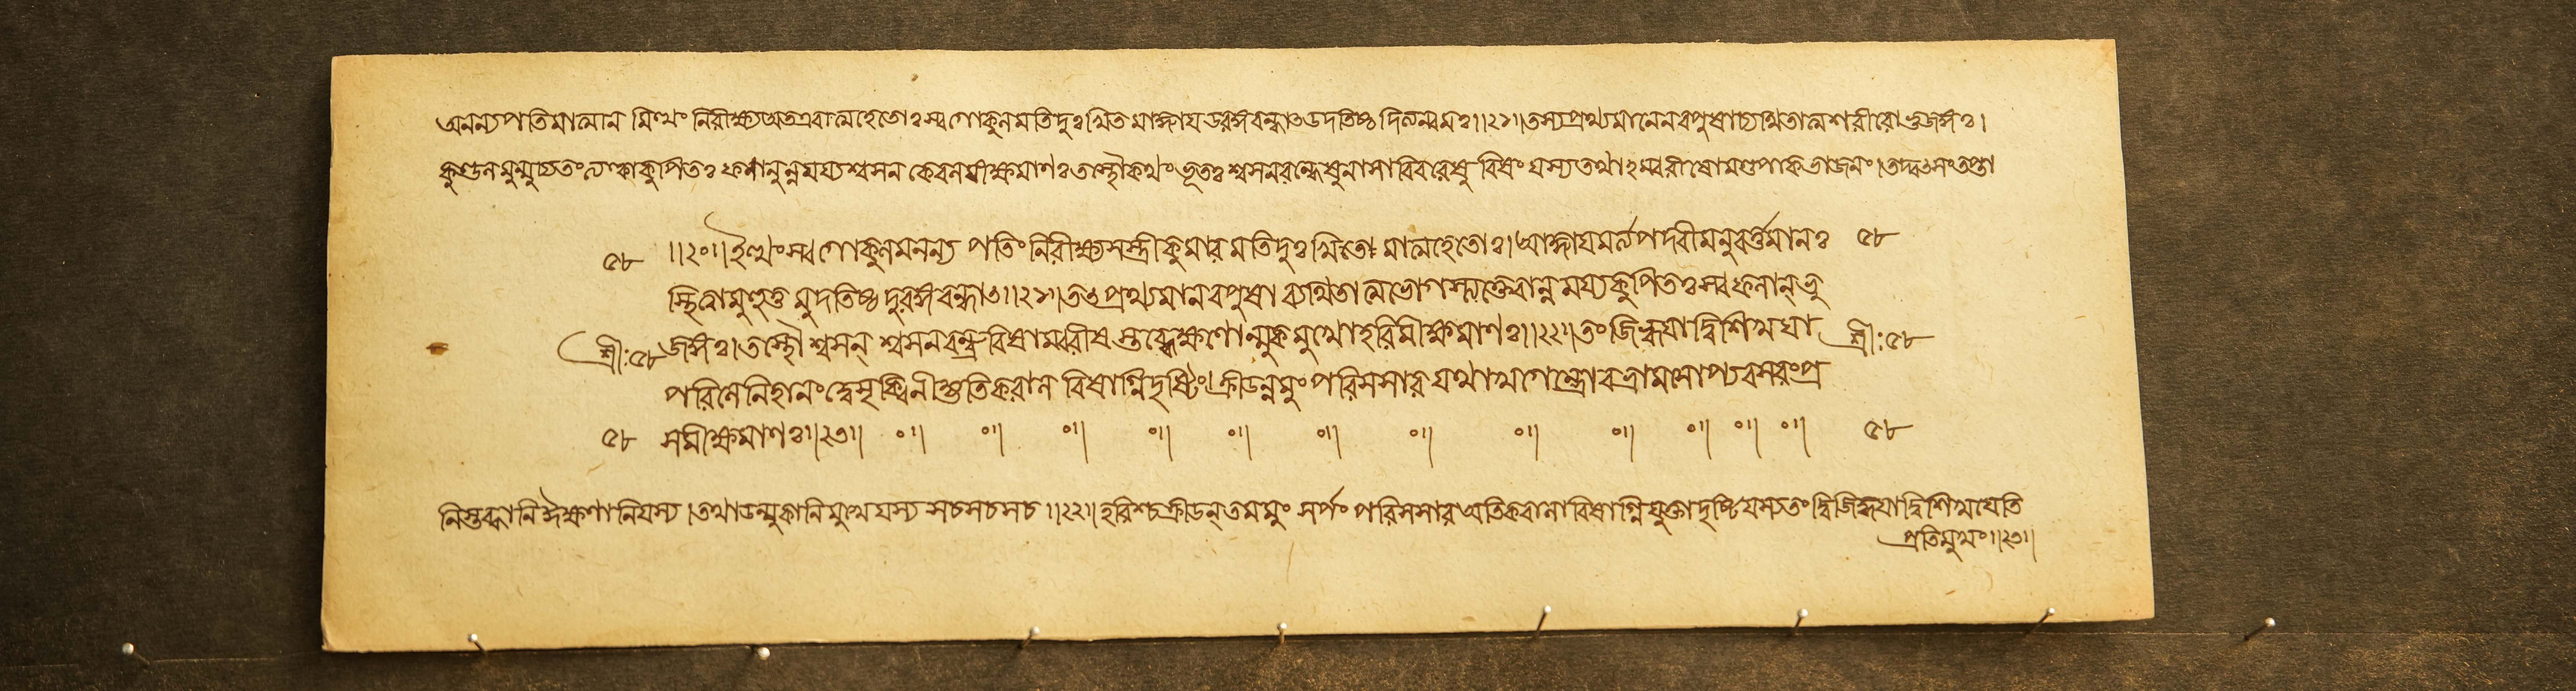 অনন্যপতিমাত্মান মিত্থং নিরীক্ষ্যঅতএবাত্মহেতোঃস্বগোকুলমতিদুঃখিতমাজ্ঞাযউরঙ্গবন্ধাৎউদতিষ্ঠদিত্যন্বয়ঃ॥২১॥তস্যপ্রথ্যমানেনবপুষাব্যথিতাত্মশরীরোভুজঙ্গঃ।
কুণ্ডলমুন্মুচ্যতংত্যক্ত্বাকুপিতঃ ফণানুন্নময্যশ্বসন কেবলমীক্ষমাণঃতস্থৌকথং ভূতঃ শ্বসনরন্ধ্রেষুনাসাবিবরেষু বিষং যস্যতথাঽম্বরীষোমণ্ডপাকভাজনং।তদ্বৎসংতপ্তা
৫৮ ॥২০॥ইত্থংস্বগোকুলমনন্য পতিং নিরীক্ষ্যসস্ত্রীকুমার মতিদুঃখিতো মাত্মহেতোঃ।আজ্ঞাযমর্ত্যপদবীমনুবর্ত্তমানঃ ৫৮
স্থিত্বামুহূর্ত্ত মুদতিষ্ঠদুরঙ্গবন্ধাৎ॥২১॥তৎপ্রথ্যমানবপুষা ব্যথিতাত্মভোগস্ত্যক্তেবান্নময্যকুপিতঃস্বফনান্ভু
শ্রীঃ৫৮ জঙ্গঃ।তস্থৌশ্বসন্ শ্বসনরন্ধ্রবিষাম্বরীষস্তব্ধেক্ষণোল্মুকমুখোহরিমীক্ষমাণঃ॥২২॥তংজিহ্বযাদ্বিশিখযা শ্রীঃ৫৮
পরিলেলিহানংদ্বেসৃক্কিনীশ্যতিকরাল বিষাগ্নিদৃষ্টিং।ক্রীডন্নমুং পরিসসার যথাখগেন্দ্রোবভ্রামসোপ্যবসরংপ্র
৫৮ সমীক্ষমাণঃ॥২৩॥ ০॥ ০॥ ০॥ ০॥ ০॥ ০॥ ০॥ ০॥ ০॥ ০॥ ০॥ ০॥ ৫৮
নিস্তব্ধানিঈক্ষণানিযস্য।তথাউল্মুকানিমুখেযস্য সচসচসচ॥২২॥হরিশ্চক্রীডন্তমমুং সর্পং পরিসসারঅতিকরালাবিষাগ্নিযুক্তাদৃষ্টিযস্যতংদ্বিজিহ্বযাদ্বিশিখযেতি
প্রতিমুখং॥২৩॥